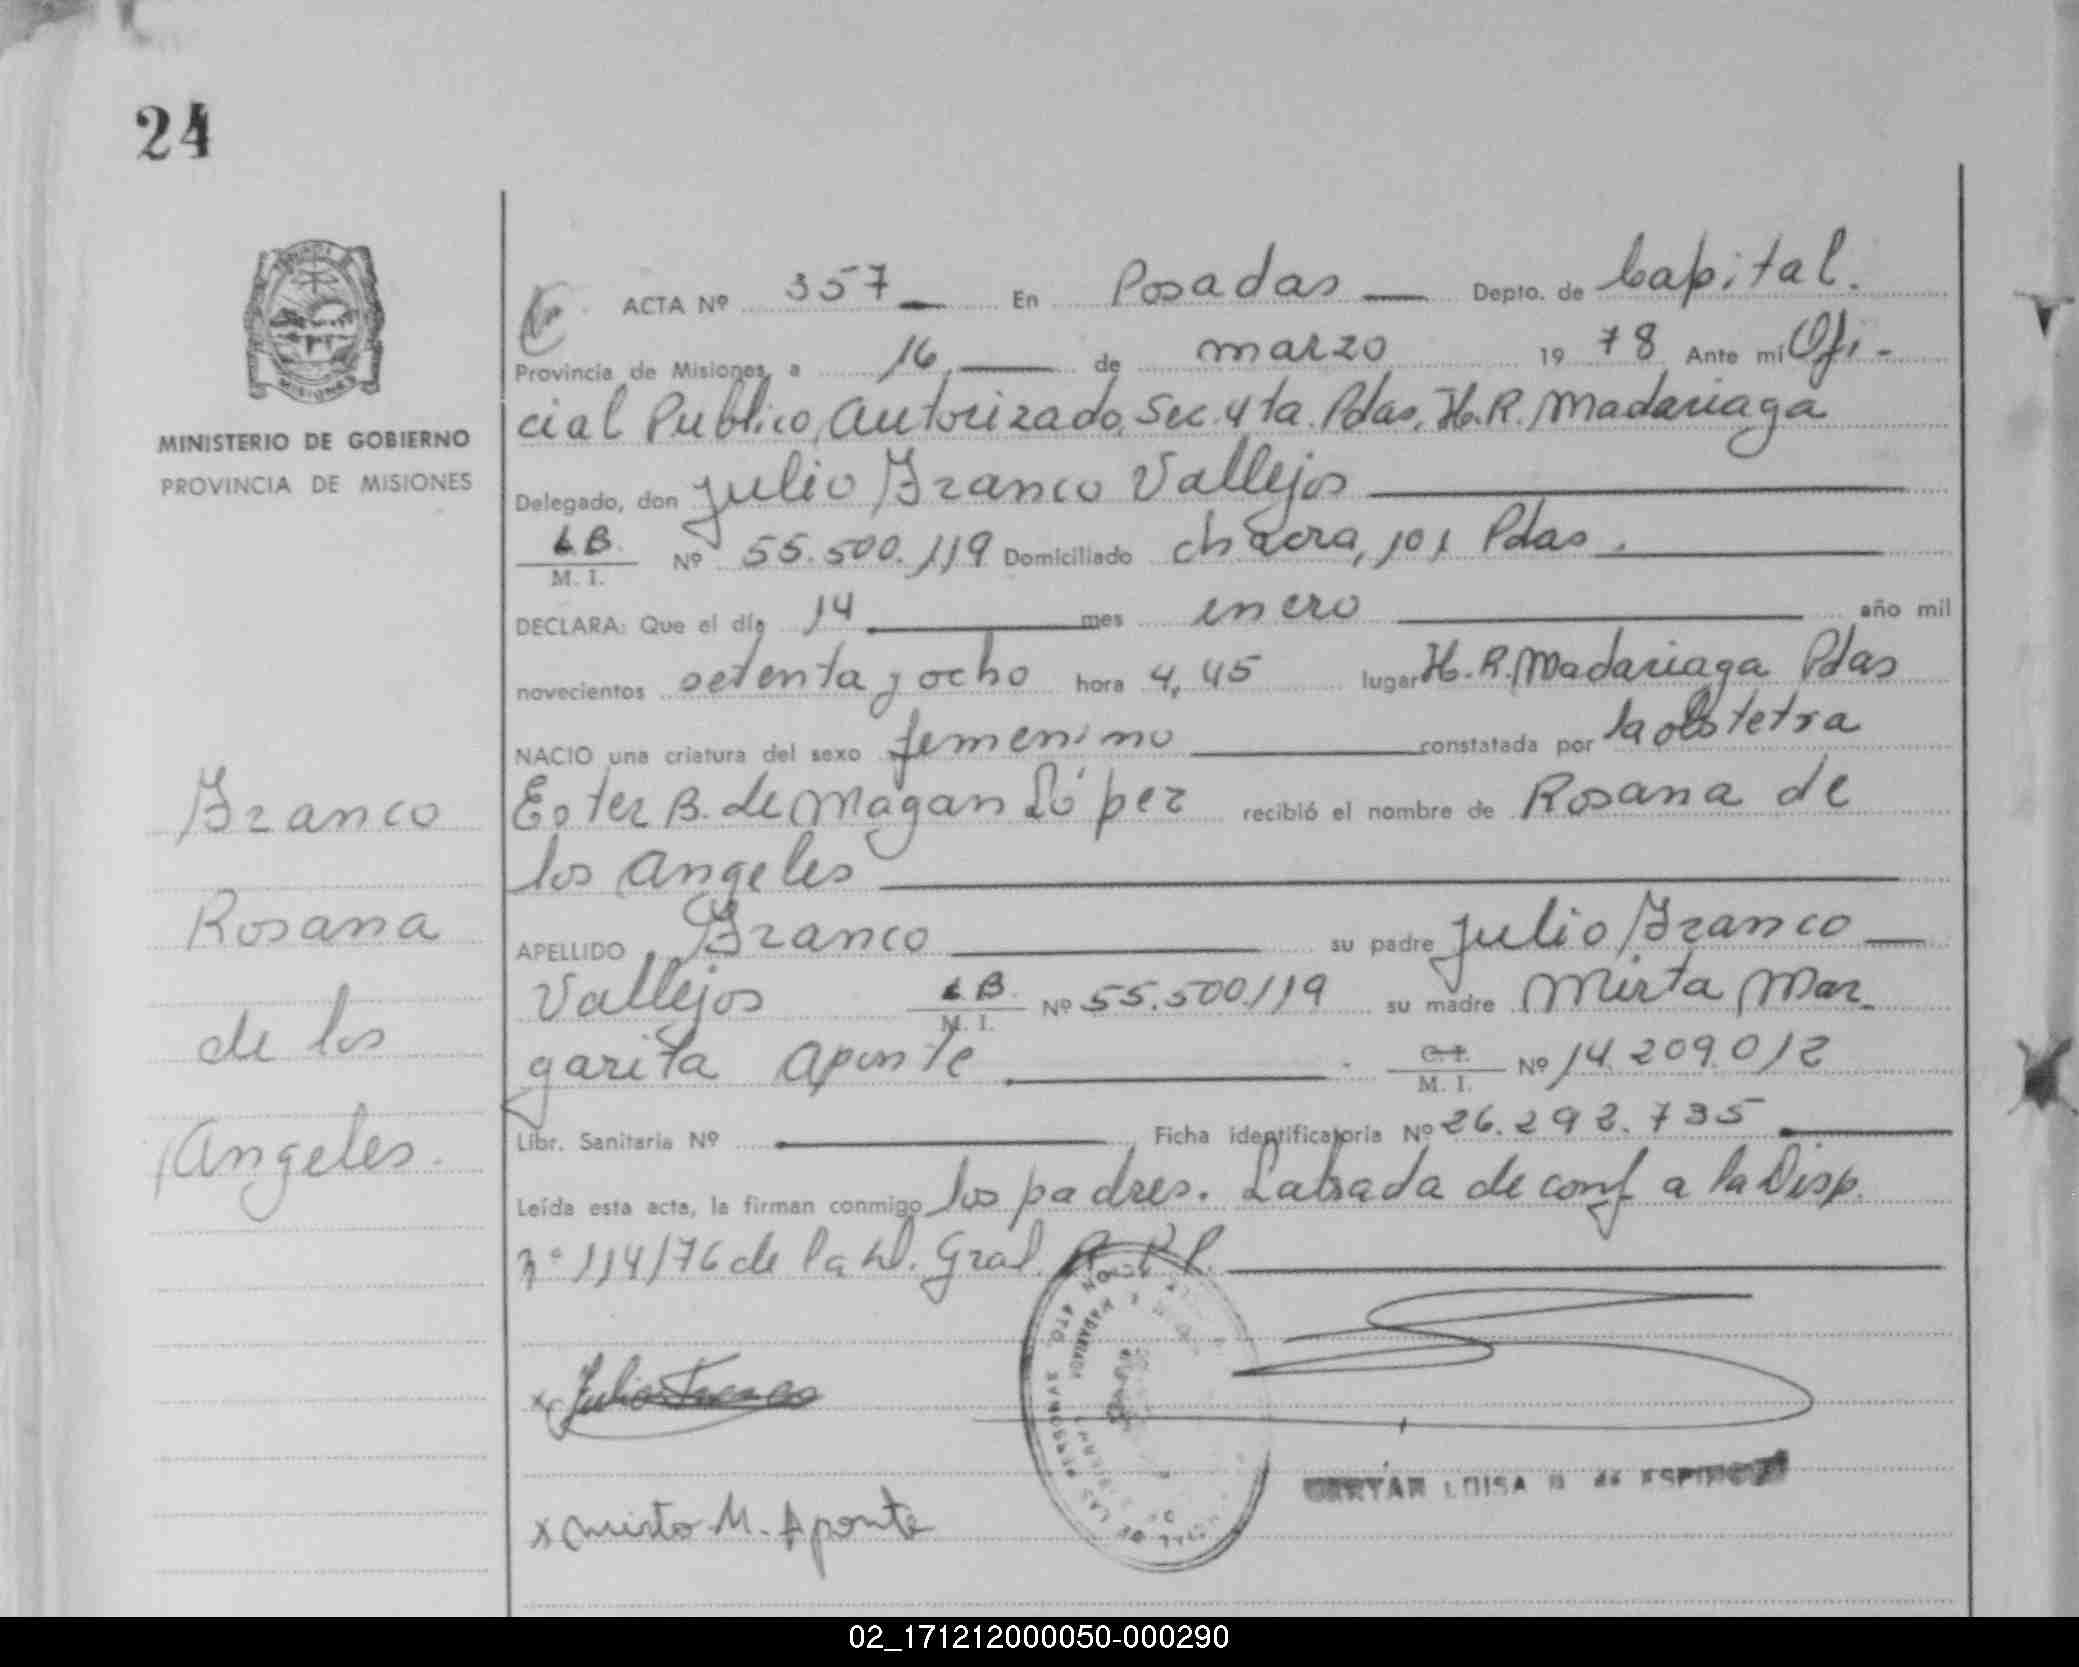 24
ACTA Nº 357 En Posadas Depto. de Capital.
Provincia de Misiones, a 16 de marzo 1978 Ante mí Ofi-
cial Publico, Autorizado, Sec. 4ta. Pdas. H.R. Madariaga
MINISTERIO DE GOBIERNO
PROVINCIA DE MISIONES
Delegado, don Julio Franco Vallejos
M. I. Nº 55.500.119 Domiciliado chacra, 101 Pdas.
DECLARA: Que el día 14 mes enero año mil
novecientos setenta y ocho hora 4,45 lugar H.R. Madariaga Pdas
NACIO una criatura del sexo femenino constatada por la obstetra
Ester B. de Magan López recibió el nombre de Rosana de
los Angeles
APELLIDO Franco su padre Julio Franco
Vallejos M. I. Nº 55.500.119 su madre Mirta Mar
garita Aponte C.I. M. I. Nº 14.209.012
Libr. Sanitaria Nº Ficha identificatoria Nº 26.292.735
Leída esta acta, la firman conmigo los padres. Labrada de conf a la Disp.
nº 114/76 de la Gral.
Franco
Rosana
de los
Angeles.
x Julio Franco
LUISA
x Mirta M. Aponte
02_171212000050-000290